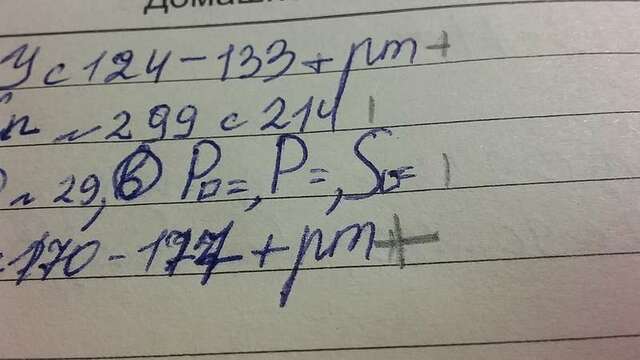 Домашн
У с 124-133 + рт +
~ 299 с 214
~ 29, в P□=, P=, S□=
170-177 + рт +